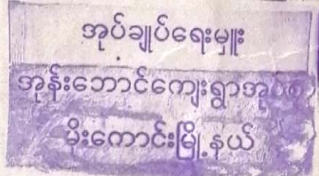 အုပ်ချုပ်ရေးမှူး
အုန်းဘောင်ကျေးရွာအုပ်စု
မိုးကောင်းမြို့နယ်